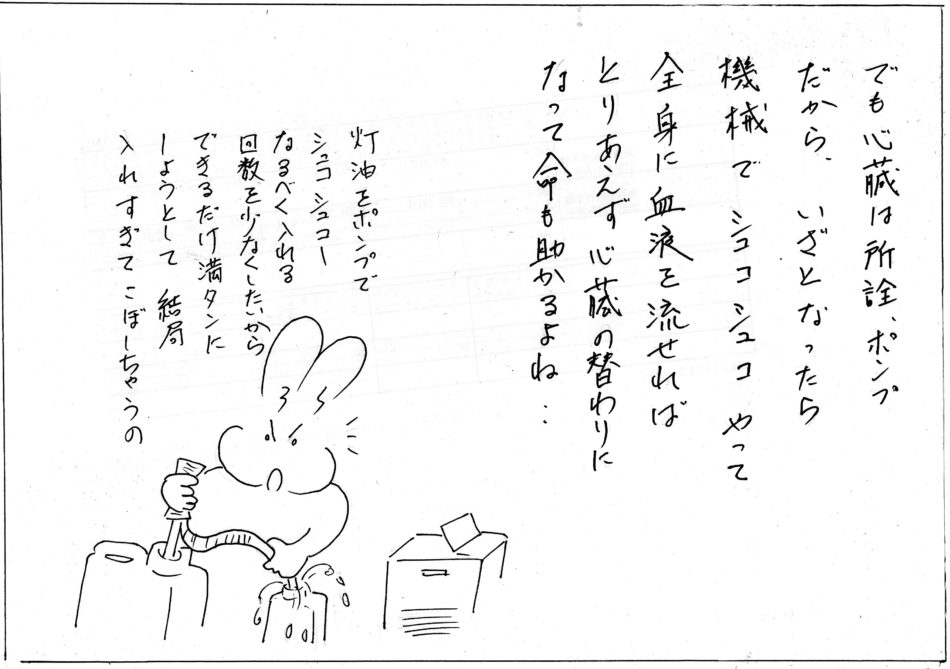 でも心臓は所詮、ポンプ
だから、いざとなったら
機械でシュコシュコやって
全身に血液を流せれば
とりあえず心臓の替わりに
なって命も助かるよね‥
灯油をポンプで
シュコシュコー
なるべく入れる
回数を少なくしたいから
できるだけ満タンに
しようとして結局
入れすぎてこぼしちゃうの